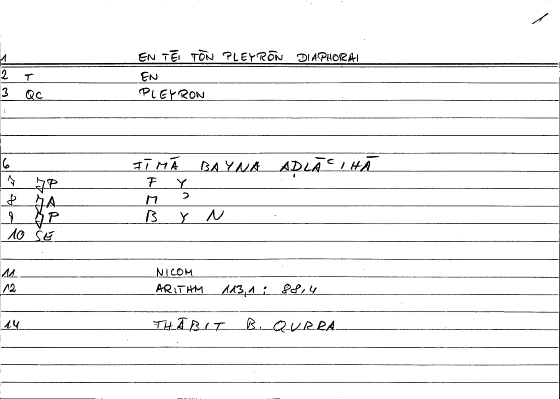 1
1 EN TĒI TŌN PLEYRŌN DIAPHORAI
2 T EN
3 QC PLEYRON
6 FĪMĀ BAYNA AḌLĀʿIHĀ
7 JP F Y
8 JA M ʾ
9 JP B Y N
10 SE
11 NICOM
12 ARITHM 113,1 : 88,4
14 THĀBIT B. QURRA